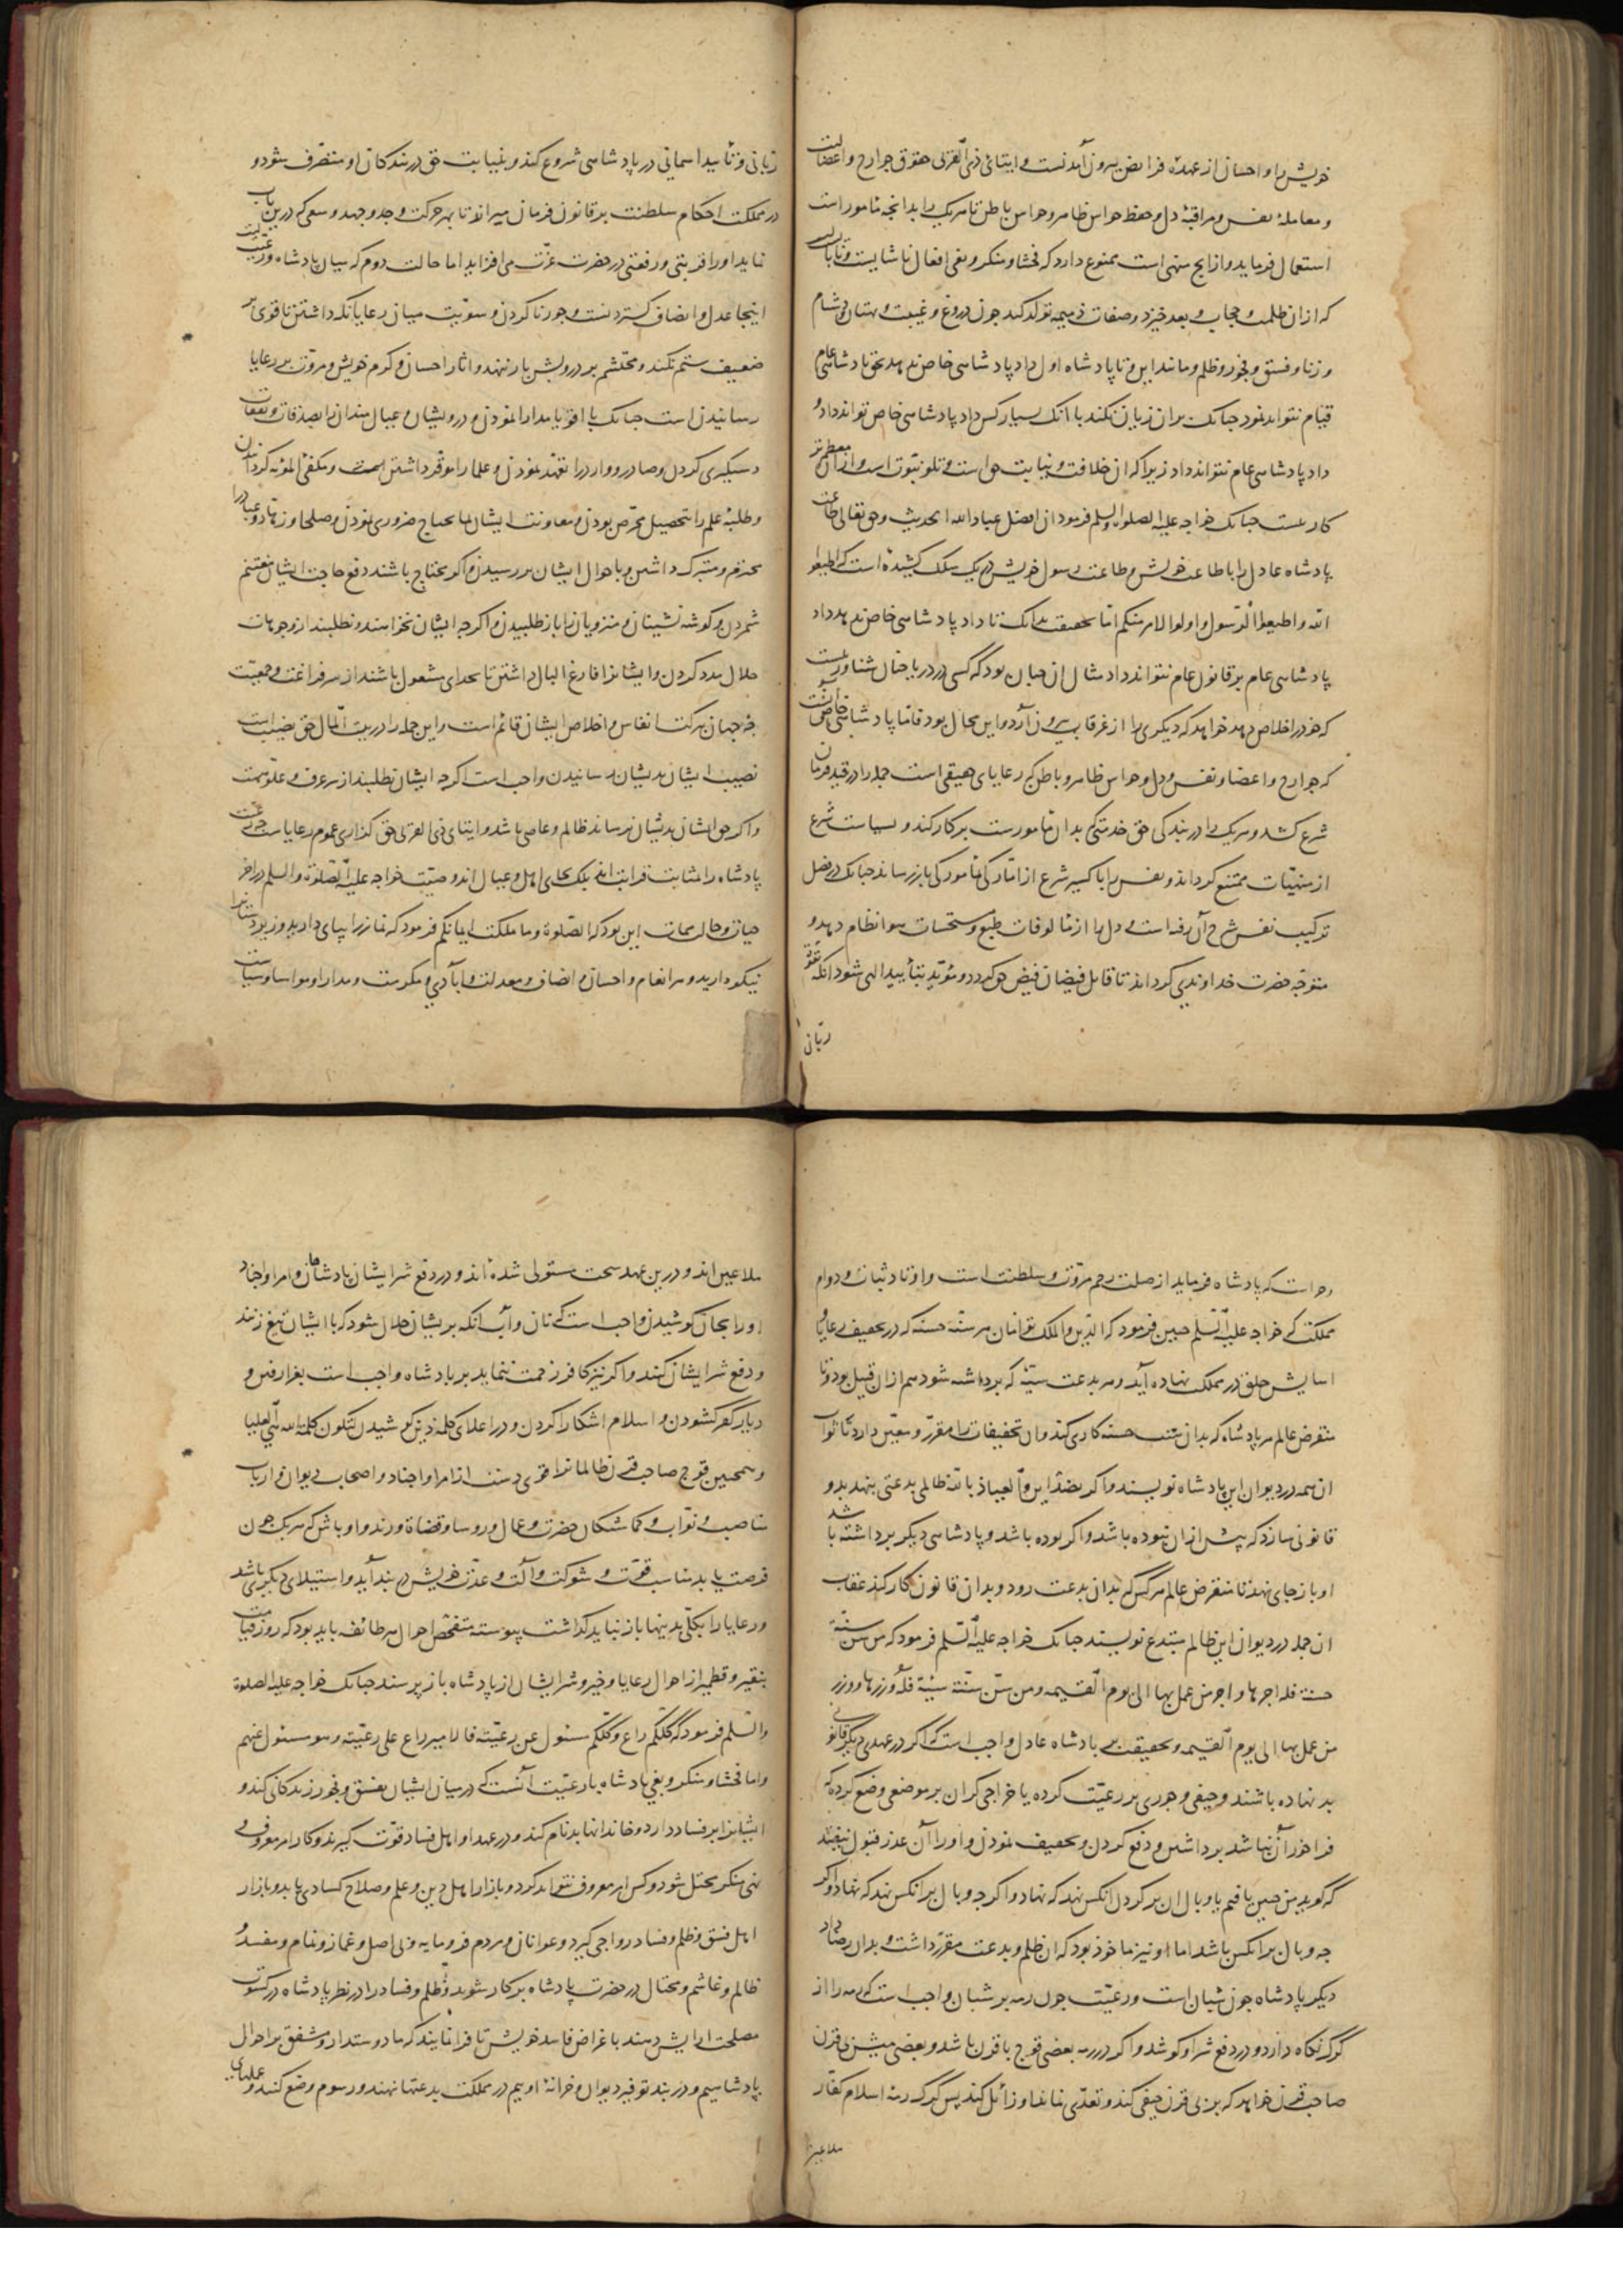 خویش را و احسان از عهده فرایض بیرون آمدنست و ایتائی ذی القربی حقوق جوارح و اعضا
و معامله نفس و مراقبه دل و حفظ حواس ظاهر و حواس باطن تا هریک را بدانچه مامور است
استعمال فرماید و از انج منهی است ممنوع دارد که فحشا و منکر و بغی افعال ناشایست و نابایست
که ازان ظلمت و حجاب و بعد خیزد و صفات ذمیمه تولد کند چون دروغ و غیبت و بهتان و دشنام
و زنا و فسق و فجور و ظلم و مانند این و تا پادشاه اول داد پادشاهی خاص ندهد بحق پادشاهی عام
قیام نتواند نمود چنانک بران زیان نکند با آنک بسیار کس داد پادشاهی خاص تواند داد و
داد پادشاهی عام نتواند داد زیرا که ان خلافت و نیابت حق است و تلو نبوت است و ازان معظم تر
کار نیست چنانک خواجه علیه الصلوة والسلم فرمود ان افضل عباد الله الحدیث و حق تعالی طاعت
پادشاه عادل را با طاعت خویش و طاعت رسول خویش در یک سلک کشیده است که اطیعوا
الله و اطیعوا الرسول و اولوا الامر منکم اما بحقیقت بدانک تا داد پادشاهی خاص ندهد داد
پادشاهی عام بر قانون عام نتواند داد مثال ان چنان بود که کسی در دریا چنان شناور نیست
که خود را خلاص دهد خواهد که دیگری را از غرقاب بیرون آرد و این محال بود فاما پادشاهی خاص آنست
که جوارح و اعضا و نفس و دل و حواس ظاهر و باطن که رعایای حقیقی است جمله را در قید فرمان
شرع کشد و هریک را در بندگی حق خدمتی که بدان مامورست بر کار کند و بسیاست شرع
از منهیات ممتنع گرداند و نفس را باکسیر شرع از امارگی بمامورگی باز رساند چنانک در فصل
ترکیب نفس شرح آن رفته است و دل را از مالوفات طبع و مستحسنات هوا نظام دهد و
متوجه حضرت خداوندی گرداند تا قابل فیضان فیض حق گردد و مؤید بتأیید الهی شود انگه بقوت
ربانی
ربانی و تأیید اسمانی در پادشاهی شروع کند و بنیابت حق در بندگان او متصرف شود و
در مملکت احکام سلطنت بر قانون فرمان میراند تا بهر حرکت و جد و جهد و سعی که درین باب
نماید او را قربتی و رفعتی در حضرت عزت می افزاید اما حالت دوم که میان پادشاه و رعیت است
اینجا عدل و انصاف گستردنست و جور ناکردن و سویت میان رعایا نگه داشتن تا قوی بر
ضعیف ستم نکند و محتشم بر درویش بار ننهد و اثار احسان و کرم خویش و مروت بر رعایا
رسانیدن است چنانک با اقویا مدارا نمودن و درویشان و عیال مندان را بصدقات و نفقات
دستگیری کردن و صادر و وارد را تعهد نمودن و علما را موقر داشتن و مکفی المؤنه گردانیدن
و طلبه علم را بتحصیل محرض بودن و معاونت ایشان بما یحتاج ضروری نمودن و صلحا و زهاد و عباد را
محترم و متبرک داشتن و باحوال ایشان بر رسیدن و اگر محتاج باشند دفع حاجت ایشان مغتنم
شمردن و گوشه نشینان و منزویان را باز طلبیدن و اگرچه ایشان نخواهند و نطلبند از وجوهات
حلال مدد کردن و ایشانرا فارغ البال داشتن تا بخدای مشغول باشند از سر فراغت و جمعیت
چه جهان ببرکت انفاس و اخلاص ایشان قائم است و این جمله را در بیت المال حق نصیب است
نصیب ایشان بدیشان رسانیدن واجب است اگرچه ایشان نطلبند از سر عرف و علو همت
و اگر حق ایشان بدیشان نرساند ظالم و عاصی باشد و ایتای ذی القربی حق گذاری عموم رعایاست چه رعیت
پادشاه را بمثابت قرابت اند بلک بجای اهل و عیال اند وصیت خواجه علیه الصلوة والسلم در اخر
حیات و حالت ممات این بود که الصلوة و ما ملکت ایمانکم فرمود که نماز را بپای دارید و زیردستانرا
نیکو دارید و هر انعام و احسان و انصاف و معدلت و ایادی و مکرمت و مدارا و مواسا و سیاست
رواست که پادشاه فرماید از صلت رحم مروت و سلطنت است و اوتاد ثبات و دوام
مملکت که خواجه علیه السلم چنین فرمود که الدین و الملک توأمان هر سنت حسنه که در تخفیف رعایا و
اسایش خلق در مملکت نهاده آید و هر بدعت سیئه که برداشته شود هم ازان قبیل بود و تا
منقرض عالم هر پادشاه که بدان سنت حسنه کار می کند و ان تخفیفات را مقرر و معین دارد ثواب
ان همه در دیوان این پادشاه نویسند و اگر بضد این و العیاذ بالله ظالمی بدعتی بنهد بد و
قانونی سازد که پیش ازان نبوده باشد و اگر بوده باشد و پادشاهی دیگر برداشته باشد
او باز جای نهد تا منقرض عالم هرکس که بدان بدعت رود و بدان قانون کار کند عقاب
ان جمله در دیوان این ظالم مبتدع نویسند چنانک خواجه علیه السلم فرمود که من سن سنة
حسنة فله اجرها و اجر من عمل بها الی یوم القیمه و من سن سنة سیئة فله وزرها و وزر
من عمل بها الی یوم القیمه و بحقیقت بر پادشاه عادل واجب است که اگر در عهدی دیگر قانونی
بد نهاده باشند و حیفی و جوری بر رعیت کرده یا خراجی گران بر موضعی وضع کرده که
فراخور آن نباشد برداشتن و دفع کردن و تخفیف نمودن و او را آن عذر قبول نیفتد
که گوید من چنین یافتم یا وبال ان بر گردن انکس نهد که نهاد و اگر چه وبال بر انکس نهد که نهاد و اگر
چه وبال بر انکس باشد اما او نیز ماخوذ بود که ان ظلم و بدعت مقرر داشت و بدان رضا داد
دیگر پادشاه چون شبان است و رعیت چون رمه بر شبان واجب است که رمه را از
گرگ نگاه دارد و در دفع شر او کوشد و اگر در رمه بعضی قوج با قرن باشد و بعضی میش بی قرن
صاحب قرن خواهد که بر بی قرن حیفی کند و تعدی نماید او زائل کند پس گرگ رمه اسلام کفار
ملاعین
ملاعین اند و درین عهد سخت مستولی شده اند و در دفع شر ایشان پادشاهان و امرا و اجناد
او را بجان کوشیدن واجب است که نان و آب انگه بریشان حلال شود که با ایشان تیغ زنند
و دفع شر ایشان کنند و اگر نیز کافر زحمت ننماید بر پادشاه واجب است بغزا رفتن و
دیار کفر گشودن و اسلام اشکارا کردن و در اعلای کلمه دین کوشیدن لتکون کلمة الله هی العلیا
و همچنین قوج صاحب قرن ظالمانرا قوی دستند از امرا و اجناد و اصحاب دیوان و ارباب
مناصب و نواب و گماشتگان حضرت و عمال و روسا و قضاة و رندو اوباش که هریک چون
فرصت یابد مناسب قوت و شوکت و آلت و عدت خویش در بند آید و استیلای دیگری باشد
و رعایا را بکلی بدینها باز نباید گذاشت پیوسته متفحص احوال هر طائفه باید بود که روز قیامت
بنقیر و قطمیر از احوال رعایا و خیر و شر ایشان از پادشاه باز پرسند چنانک خواجه علیه الصلوة
والسلم فرمود که کلکم راع و کلکم مسئول عن رعیته فالامیر راع علی رعیته و هو مسئول عنهم
و اما فحشا و منکر و بغی پادشاه با رعیت آنست که در میان ایشان بفسق و فجور زندگانی کند و
ایشانرا بر فساد دارد و خاندانها بدنام کند و در عهد او اهل فساد قوت گیرند و کار امر معروف و
نهی منکر مختل شود و کس امر معروف نتواند کرد و بازار اهل دین و علم و صلاح کسادی یابد و بازار
اهل فسق و ظلم و فساد رواجی گیرد و عوانان و مردم فرومایه و بی اصل و غماز و نمام و مفسد و
ظالم و غاشم و محتال در حضرت پادشاه بر کار شوند و ظلم و فساد را در نظر پادشاه در کسوت
مصلحت ارایش دهند باغراض فاسد خویش تا فرا نمایند که ما دوستدار و مشفق بر احوال
پادشاهیم و در بند توفیر دیوان و خزانه اوییم در مملکت بدعتها نهند و رسوم وضع کنند و